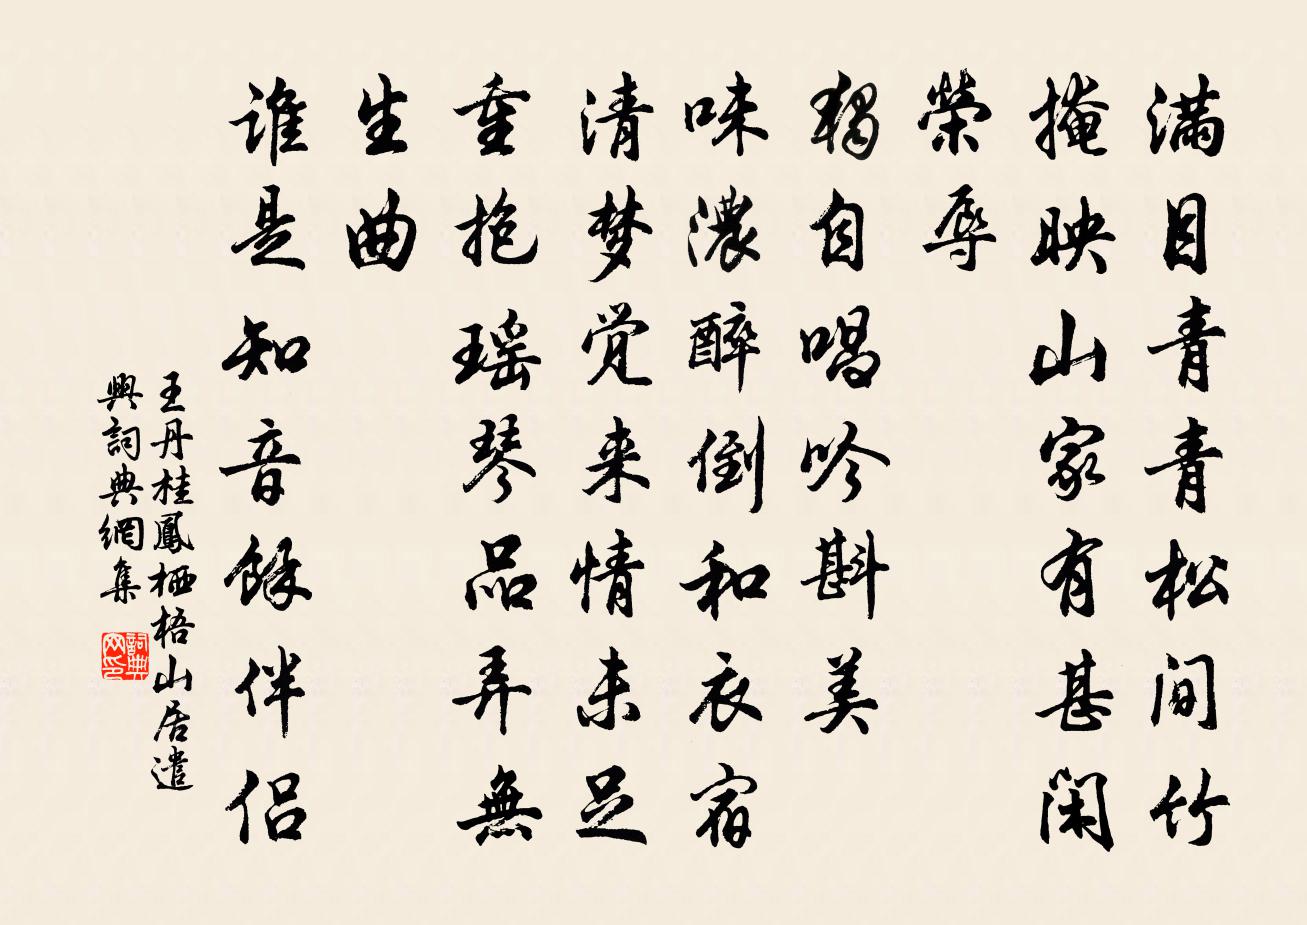 满目青青松间竹
掩映山家有甚闲
荣辱
独自唱吟斟美
味浓醉倒和衣宿
清梦觉来情未足
重抱瑶琴品弄無
生曲
谁是知音馀伴侣
王丹桂鳳栖梧山居遣
興詞典網集
詞典
网印